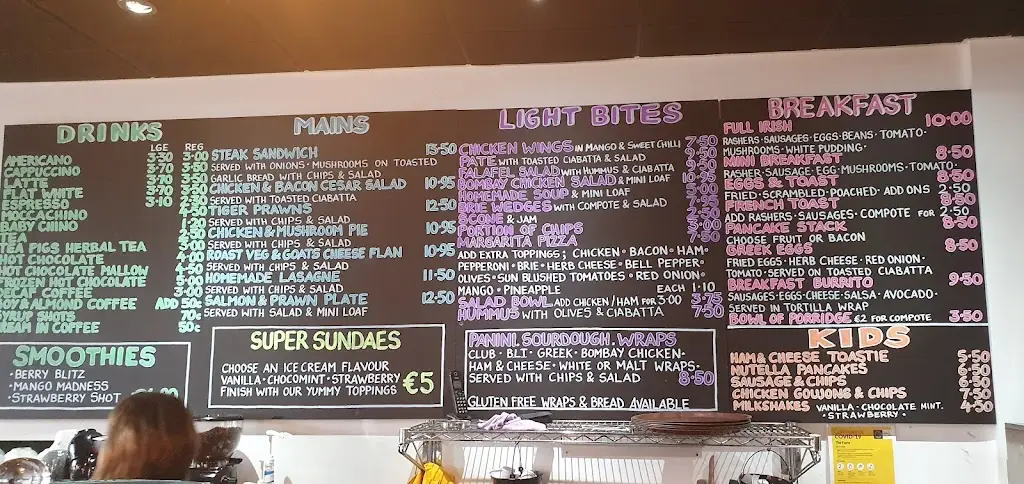 DRINKS
LGE REG
AMERICANO 3·30 3·00
CAPPUCCINO 3·70
LATTE 3·70
FLAT WHITE
ESPRESSO 3·10
MOCCACHINO
BABY CHINO
TEA
TEA PIGS HERBAL TEA
HOT CHOCOLATE
HOT CHOCOLATE MALLOW
FROZEN HOT CHOCOLATE
ICED COFFEE
SOY & ALMOND COFFEE ADD 50c
SYRUP SHOTS 70c
CREAM IN COFFEE 50c
SMOOTHIES
·BERRY BLITZ
·MANGO MADNESS
·STRAWBERRY SHOT
MAINS
STEAK SANDWICH 13·50
SERVED WITH ONIONS·MUSHROOMS ON TOASTED
GARLIC BREAD WITH CHIPS & SALAD
CHICKEN & BACON CESAR SALAD 10·95
SERVED WITH TOASTED CIABATTA
TIGER PRAWNS 12·50
SERVED WITH CHIPS & SALAD
CHICKEN & MUSHROOM PIE
SERVED WITH CHIPS & SALAD
ROAST VEG & GOATS CHEESE FLAN 10·95
SERVED WITH CHIPS & SALAD
HOMEMADE LASAGNE 11·50
SERVED WITH CHIPS & SALAD
SALMON & PRAWN PLATE 12·50
SERVED WITH SALAD & MINI LOAF
SUPER SUNDAES
CHOOSE AN ICE CREAM FLAVOUR
VANILLA·CHOCOMINT·STRAWBERRY
FINISH WITH OUR YUMMY TOPPINGS €5
LIGHT BITES
CHICKEN WINGS IN MANGO & SWEET CHILLI 7·50
PATE WITH TOASTED CIABATTA & SALAD
FALAFEL SALAD WITH HUMMUS & CIABATTA
BOMBAY CHICKEN SALAD & MINI LOAF
HOMEMADE SOUP & MINI LOAF
BRIE WEDGES WITH COMPOTE & SALAD
SCONE & JAM
PORTION OF CHIPS
MARGARITA PIZZA 7·50
ADD EXTRA TOPPINGS; CHICKEN·BACON·HAM·
PEPPERONI·BRIE·HERB CHEESE·BELL PEPPER·
OLIVES·SUN BLUSHED TOMATOES·RED ONION·
MANGO·PINEAPPLE EACH 1·10
SALAD BOWL ADD CHICKEN/HAM FOR 3·00 3·75
HUMMUS WITH OLIVES & CIABATTA 7·50
PANINI. SOURDOUGH. WRAPS
CLUB·BLT·GREEK·BOMBAY CHICKEN·
HAM & CHEESE·WHITE OR MALT WRAPS·
SERVED WITH CHIPS & SALAD 8·50
GLUTEN FREE WRAPS & BREAD AVAILABLE
BREAKFAST
FULL IRISH 10·00
RASHERS·SAUSAGES·EGGS·BEANS·TOMATO·
MUSHROOMS·WHITE PUDDING·
MINI BREAKFAST 8·50
RASHER·SAUSAGE·EGG·MUSHROOMS·TOMATO·
EGGS & TOAST 8·50
FRIED·SCRAMBLED·POACHED·ADD ONS 2·50
FRENCH TOAST 8·50
ADD RASHERS·SAUSAGES·COMPOTE FOR 2·50
PANCAKE STACK 8·50
CHOOSE FRUIT OR BACON
GREEK EGGS 8·50
FRIED EGGS·HERB CHEESE·RED ONION·
TOMATO·SERVED ON TOASTED CIABATTA
BREAKFAST BURRITO 9·50
SAUSAGES·EGGS·CHEESE·SALSA·AVOCADO·
SERVED IN TORTILLA WRAP
BOWL OF PORRIDGE €2 FOR COMPOTE 3·50
KIDS
HAM & CHEESE TOASTIE 5·50
NUTELLA PANCAKES
SAUSAGE & CHIPS
CHICKEN GOUJONS & CHIPS 7·50
MILKSHAKES VANILLA·CHOCOLATE MINT· 4·50
·STRAWBERRY·
COVID-19